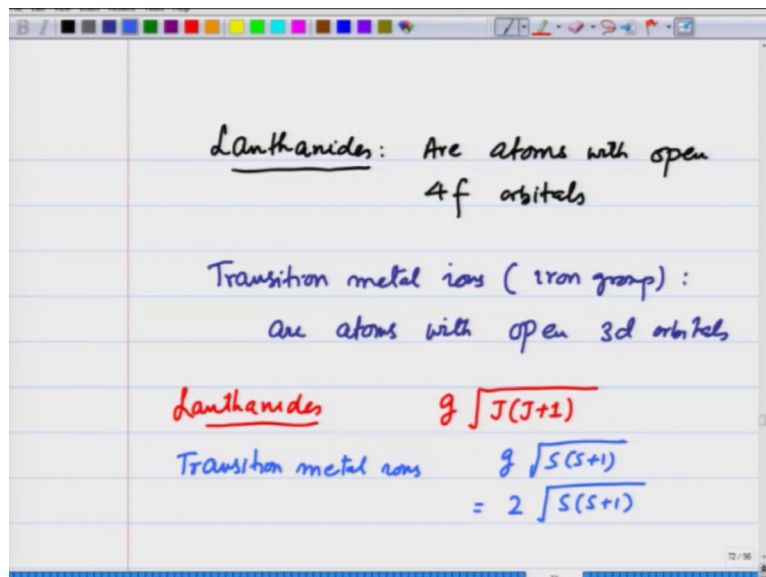 Lanthanides: Are atoms with open
4f orbitals
Transition metal ions (iron group):
are atoms with open 3d orbitals
Lanthanides g √J(J+1)
Transition metal ions g √S(S+1)
= 2 √S(S+1)
72 / 96